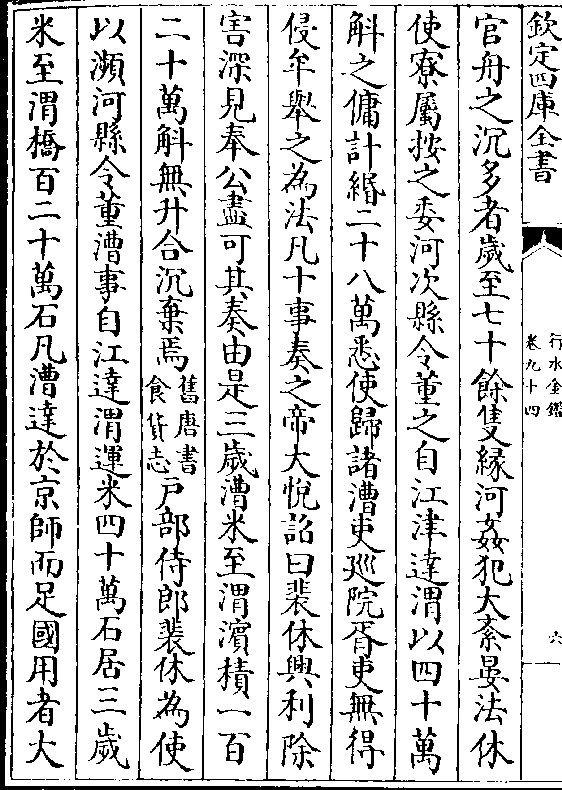 欽定四庫全書
行水金鑑
卷九十四
六
官舟之沉多者歲至七十餘隻緣河姦犯大紊晏法休
使寮屬按之委河次縣令董之自江津達渭以四十萬
斛之傭計緡二十八萬悉使歸諸漕吏廵院胥吏無得
侵牟舉之為法凡十事奏之帝大悅詔曰裴休興利除
害深見奉公盡可其奏由是三歲漕米至渭濱積一百
二十萬斛無升合沉棄焉舊唐書食貨志戶部侍郎裴休為使
以瀕河縣令董漕事自江達渭運米四十萬石居三歲
米至渭橋百二十萬石凡漕達於京師而足國用者大